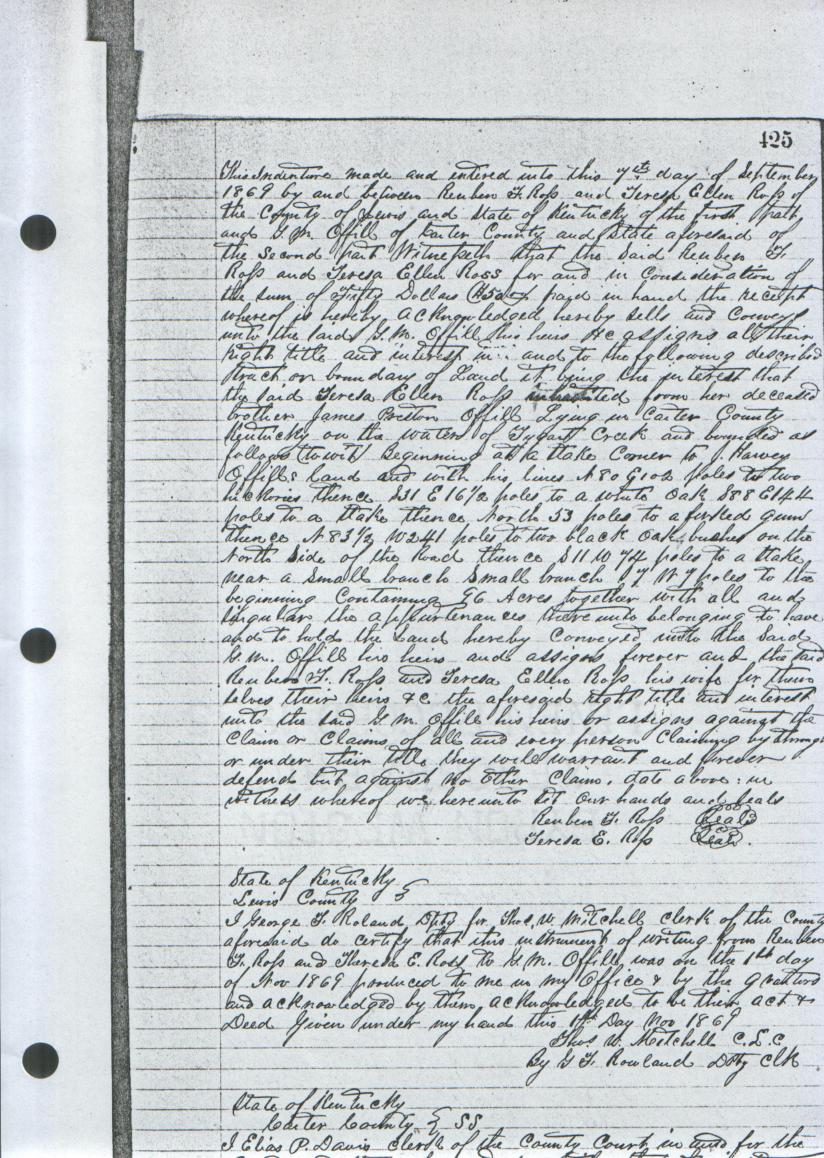 425
This Indenture made and entered into this 7th day of September
1869 by and between Reuben F. Ross and Teresa Ellen Ross of
the County of Lewis and State of Kentucky of the first part
and G. M. Offill of Carter County and State aforesaid of
the second part Witnesseth that the Said Reuben F.
Ross and Teresa Ellen Ross for and in Consideration of
the sum of Fifty Dollars paid in hand the receipt
whereof is hereby acknowledged hereby sells and Conveys
unto the said G. M. Offill his heirs assigns all their
right title and interest in and to the following described
tract or boundary of Land it being the interest that
the said Teresa Ellen Ross inherited from her deceased
brother James Preston Offill Lying in Carter County
Kentucky on the waters of Tygart Creek and bounded as
follows (towit) Beginning at a stake Corner to J. Harvey
Offills Land and with his lines N 80 E 102 poles to two
hickories thence S31 E 16½ poles to a white Oak S88 E144
poles to a stake thence North 53 poles to a forked gum
thence N 83½ W241 poles to two black Oak bushes on the
North Side of the Road thence S11 W 74 poles to a stake
near a Small branch Small branch 7 W 7 poles to the
beginning Containing 96 Acres together with all and
singular the appurtenances thereunto belonging to have
and to hold the Land hereby Conveyed unto the Said
G. M. Offill his heirs and assigns forever and the said
Reuben F. Ross and Teresa Ellen Ross his wife for them
selves their heirs &c the aforesaid right title and interest
unto the said G. M. Offill his heirs or assigns against the
Claim or Claims of all and every person Claiming by through
or under their title they will warrant and forever
defend but against no other Claim. date above: in
witness whereof we hereunto set our hands and seals
Reuben F. Ross Seal
Teresa E. Ross Seal.
State of Kentucky
Lewis County
I George F. Roland Dpty for Thos. W. Mitchell clerk of the County
aforesaid do certify that this instrument of writing from Reuben
F. Ross and Theresa E. Ross to G. M. Offill was on the 1st day
of Nov 1869 produced to me in my Office & by the grantors
and acknowledged by them acknowledged to be their act &
Deed Given under my hand this 1st Day Nov 1869
Thos W. Mitchell C.L.C
By G F. Rowland Dpty Clk
State of Kentucky
Carter County } SS
I Elias P. Davis Clerk of the County Court in and for the